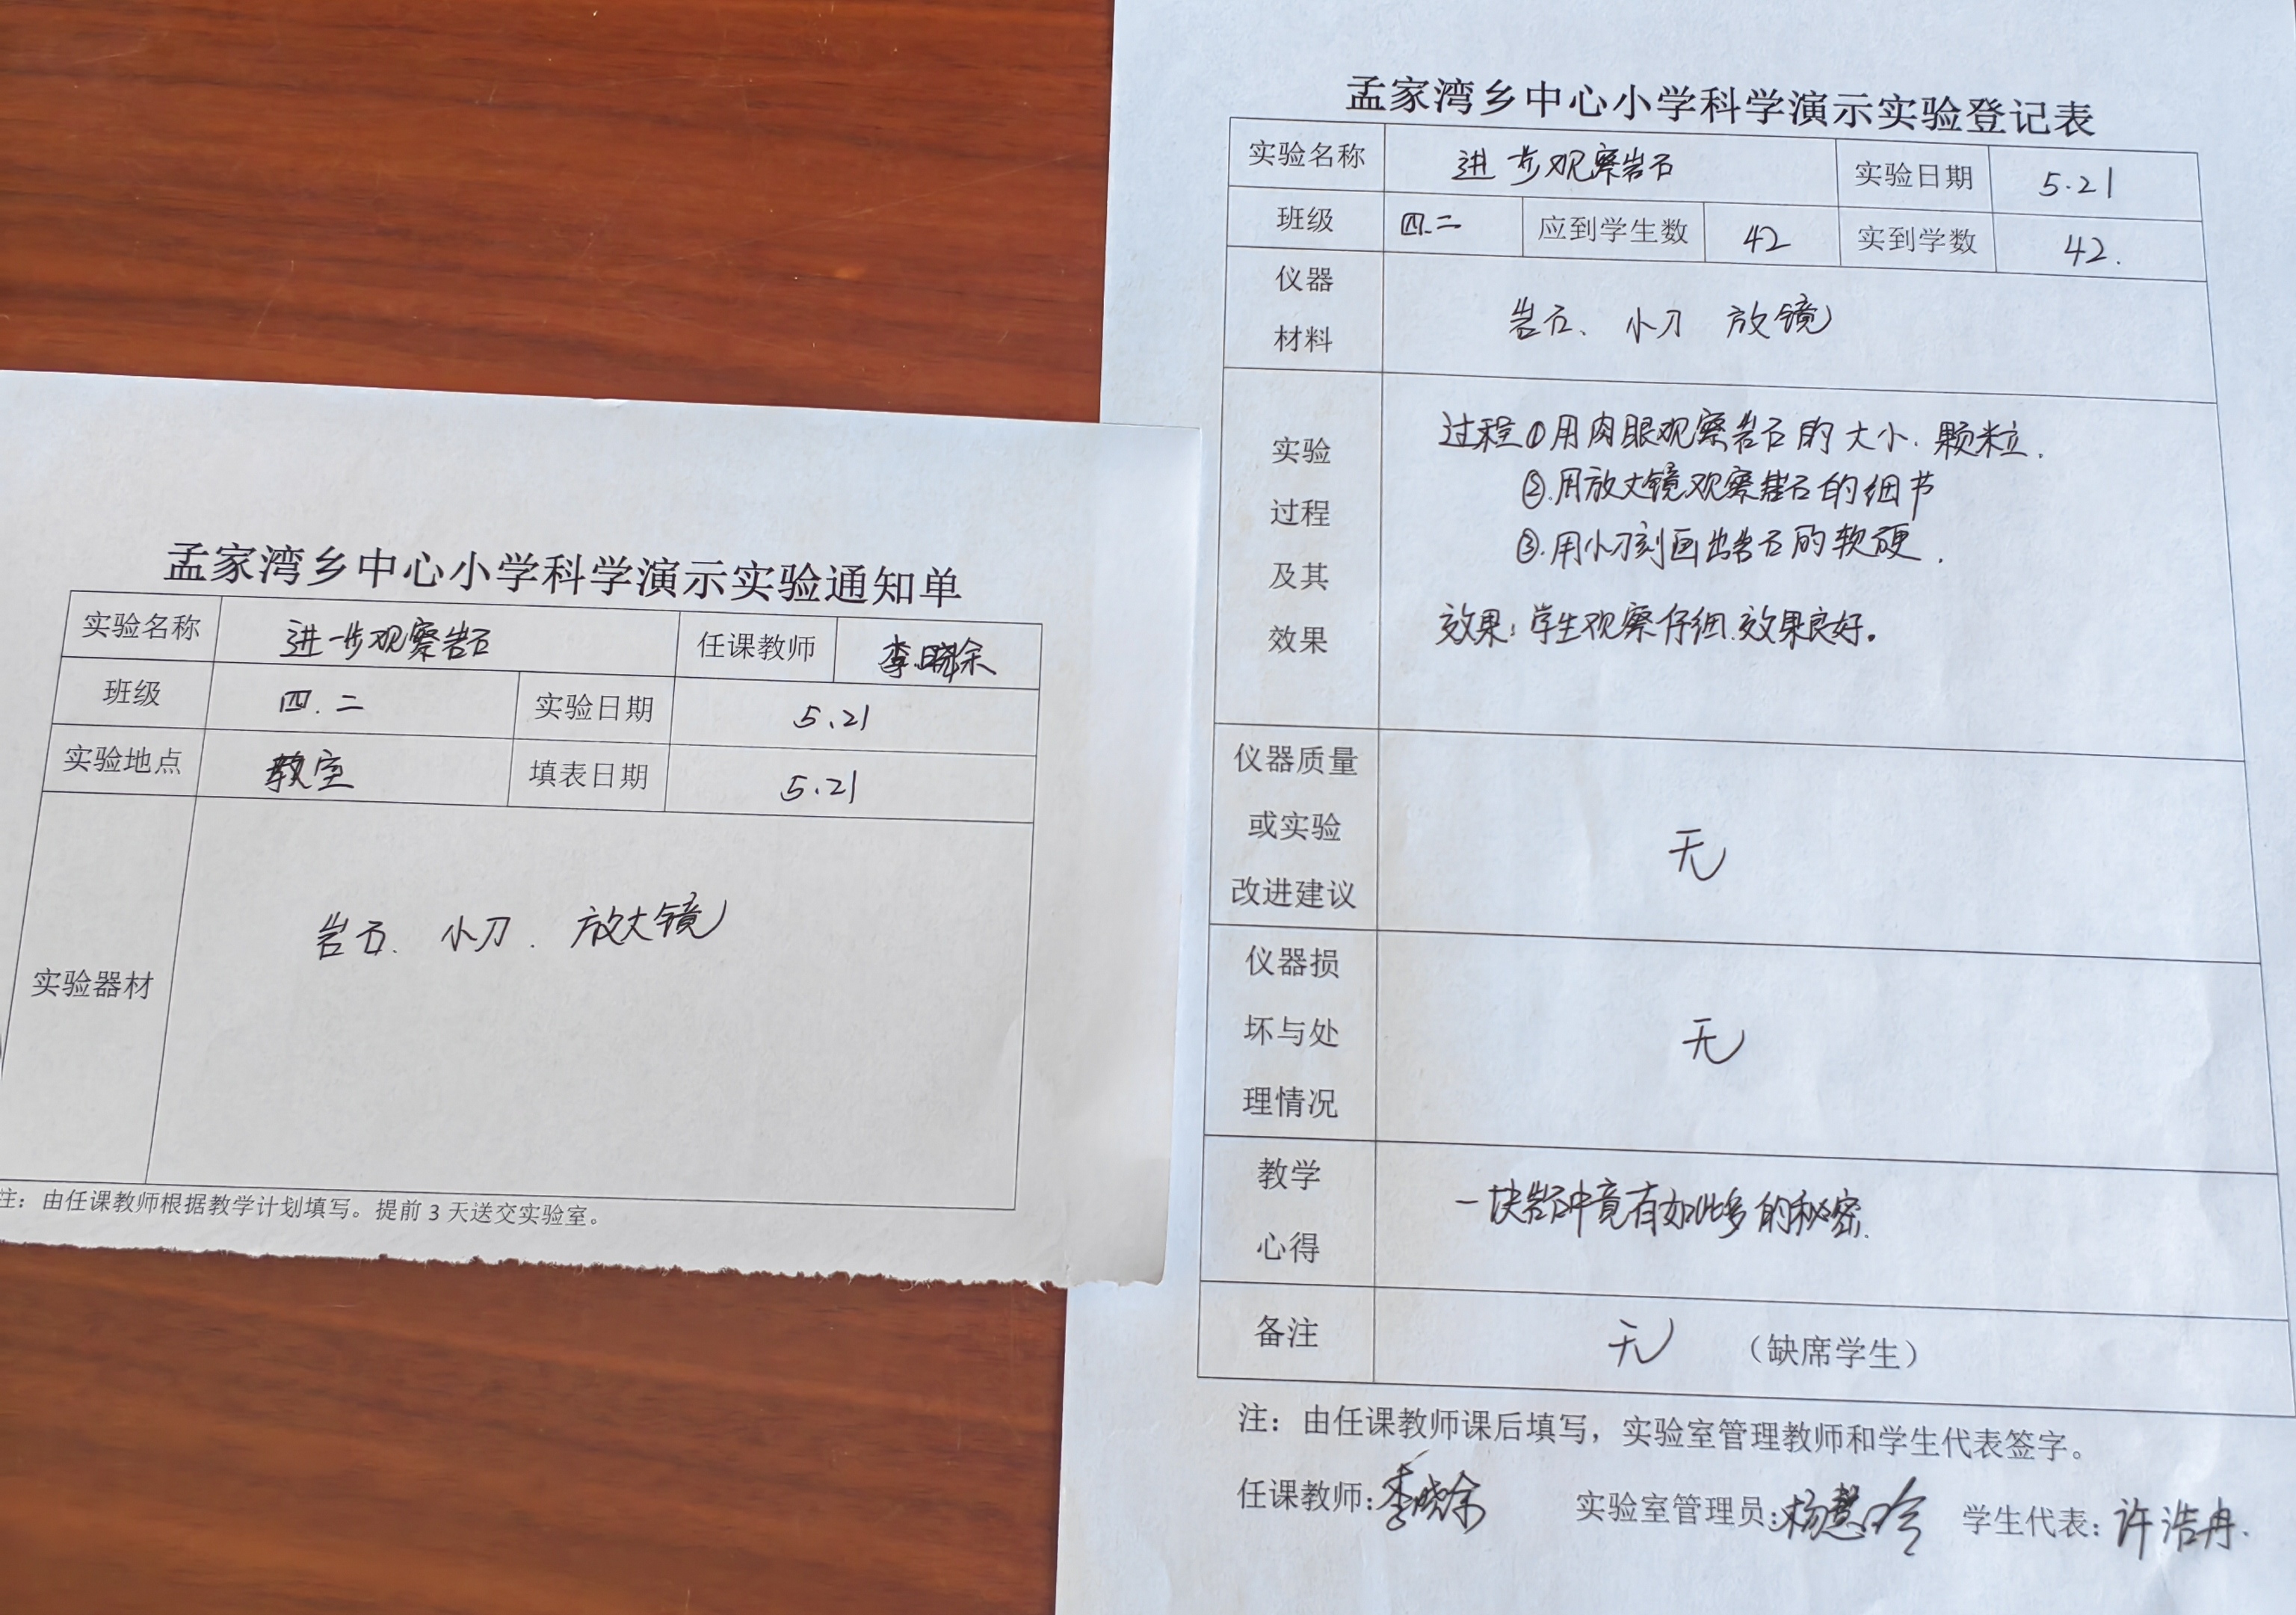 孟家湾乡中心小学科学演示实验通知单
实验名称 进一步观察岩石 任课教师 李晓余
班级 四.二 实验日期 5.21
实验地点 教室 填表日期 5.21
实验器材 岩石、小刀、放大镜
注：由任课教师根据教学计划填写。提前3天送交实验室。
孟家湾乡中心小学科学演示实验登记表
实验名称 进一步观察岩石 实验日期 5.21
班级 四.二 应到学生数 42 实到学数 42.
仪器
材料
岩石、小刀 放镜
实验
过程
及其
效果
过程①用肉眼观察岩石的大小.颗粒.
②.用放大镜观察岩石的细节
③.用小刀刻画出岩石的软硬.
效果：学生观察仔细.效果良好。
仪器质量
或实验
改进建议
无
仪器损
坏与处
理情况
无
教学
心得
一块岩石中竟有如此多的秘密.
备注 无 （缺席学生）
注：由任课教师课后填写，实验室管理教师和学生代表签字。
任课教师：李晓余 实验室管理员：杨慧玲 学生代表：许浩冉.